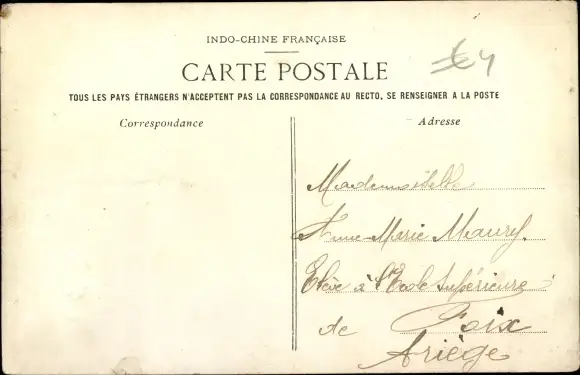 INDO-CHINE FRANÇAISE
CARTE POSTALE
€4
TOUS LES PAYS ÉTRANGERS N'ACCEPTENT PAS LA CORRESPONDANCE AU RECTO, SE RENSEIGNER A LA POSTE
Correspondance
Adresse
Mademoiselle
Anne-Marie Maury.
Elève à l'Ecole Supérieure
de Foix
Ariège